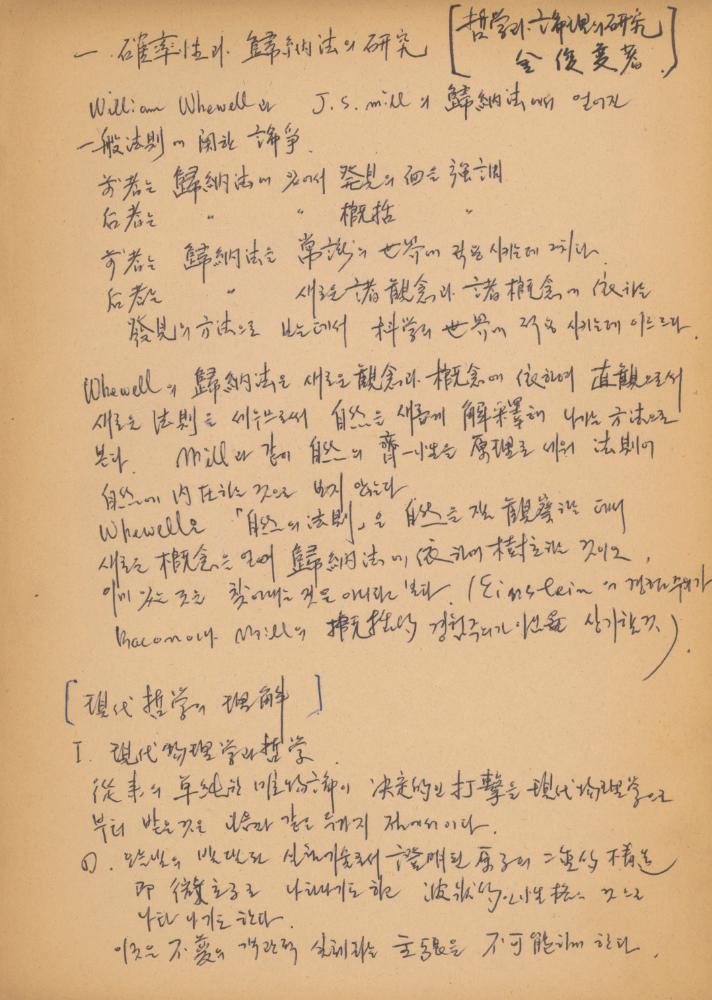 一. 確率性과 歸納法의 研究
[哲学과 論理의 研究
金俊燮著.]
William Whewell과 J. S. mill의 歸納法에서 얻어진
一般法則에 関한 論爭.
前者는 歸納法에 있어서 発見의 面을 強調
后者는 〃 〃 概括 〃
前者는 歸納法을 常識的 世界에 적용시키는데 그치나
后者는 〃 새로운 諸觀念과 諸概念에 依하는
發見의 方法으로 보는데서 科学的 世界에 적용시키는데 이르른다.
Whewell의 歸納法은 새로운 觀念과 概念에 依하여 直観으로써
새로운 法則을 세우므로써 自然을 새롭게 解釋해 나가는 方法으로
본다. Mill과 같이 自然의 齊一性을 原理로 세워 法則이
自然에 內在하는 것으로 보지 않는다
Whewell은 「自然의 法則」은 自然을 観察하는 데서
새로운 概念을 얻어 歸納法에 依하여 樹立하는 것이고,
이미 있는 것을 찾아내는 것은 아니라고 본다. (Einstein의 경험주의가
Bacon이나 Mill의 概括的 경험주의가 아님을 상기할것.)
[現代哲学의 理解]
I. 現代物理学과 哲学.
從来의 単純한 唯物論이 決定的인 打擊을 現代物理学으로
부터 받은 것은 다음과 같은 두가지 점에서이다.
①. 오늘날의 발달된 실험기술로서 證明된 原子의 二重的 構造
即 微粒子로 나타나기도 하고 波状的인 性格의 것으로
나타나기도 한다.
이것은 不変의 객관적 실체라는 主張을 不可能하게 한다.